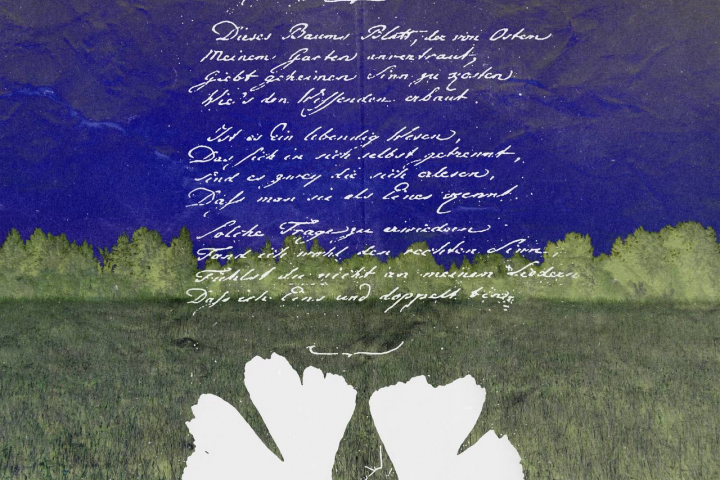 Dieses Baums Blatt, der von Osten
Meinem Garten anvertraut,
Giebt geheimen Sinn zu kosten
Wie's den Wissenden erbaut.
Ist es Ein lebendig Wesen,
Das sich in sich selbst getrennt,
sind es zwey die sich erlesen,
Daß man sie als Eines kennt.
Solche Frage zu erwiedern
Fand ich wohl den rechten Sinn,
Fühlst du nicht an meinen Liedern
Daß ich Eins und doppelt bin.